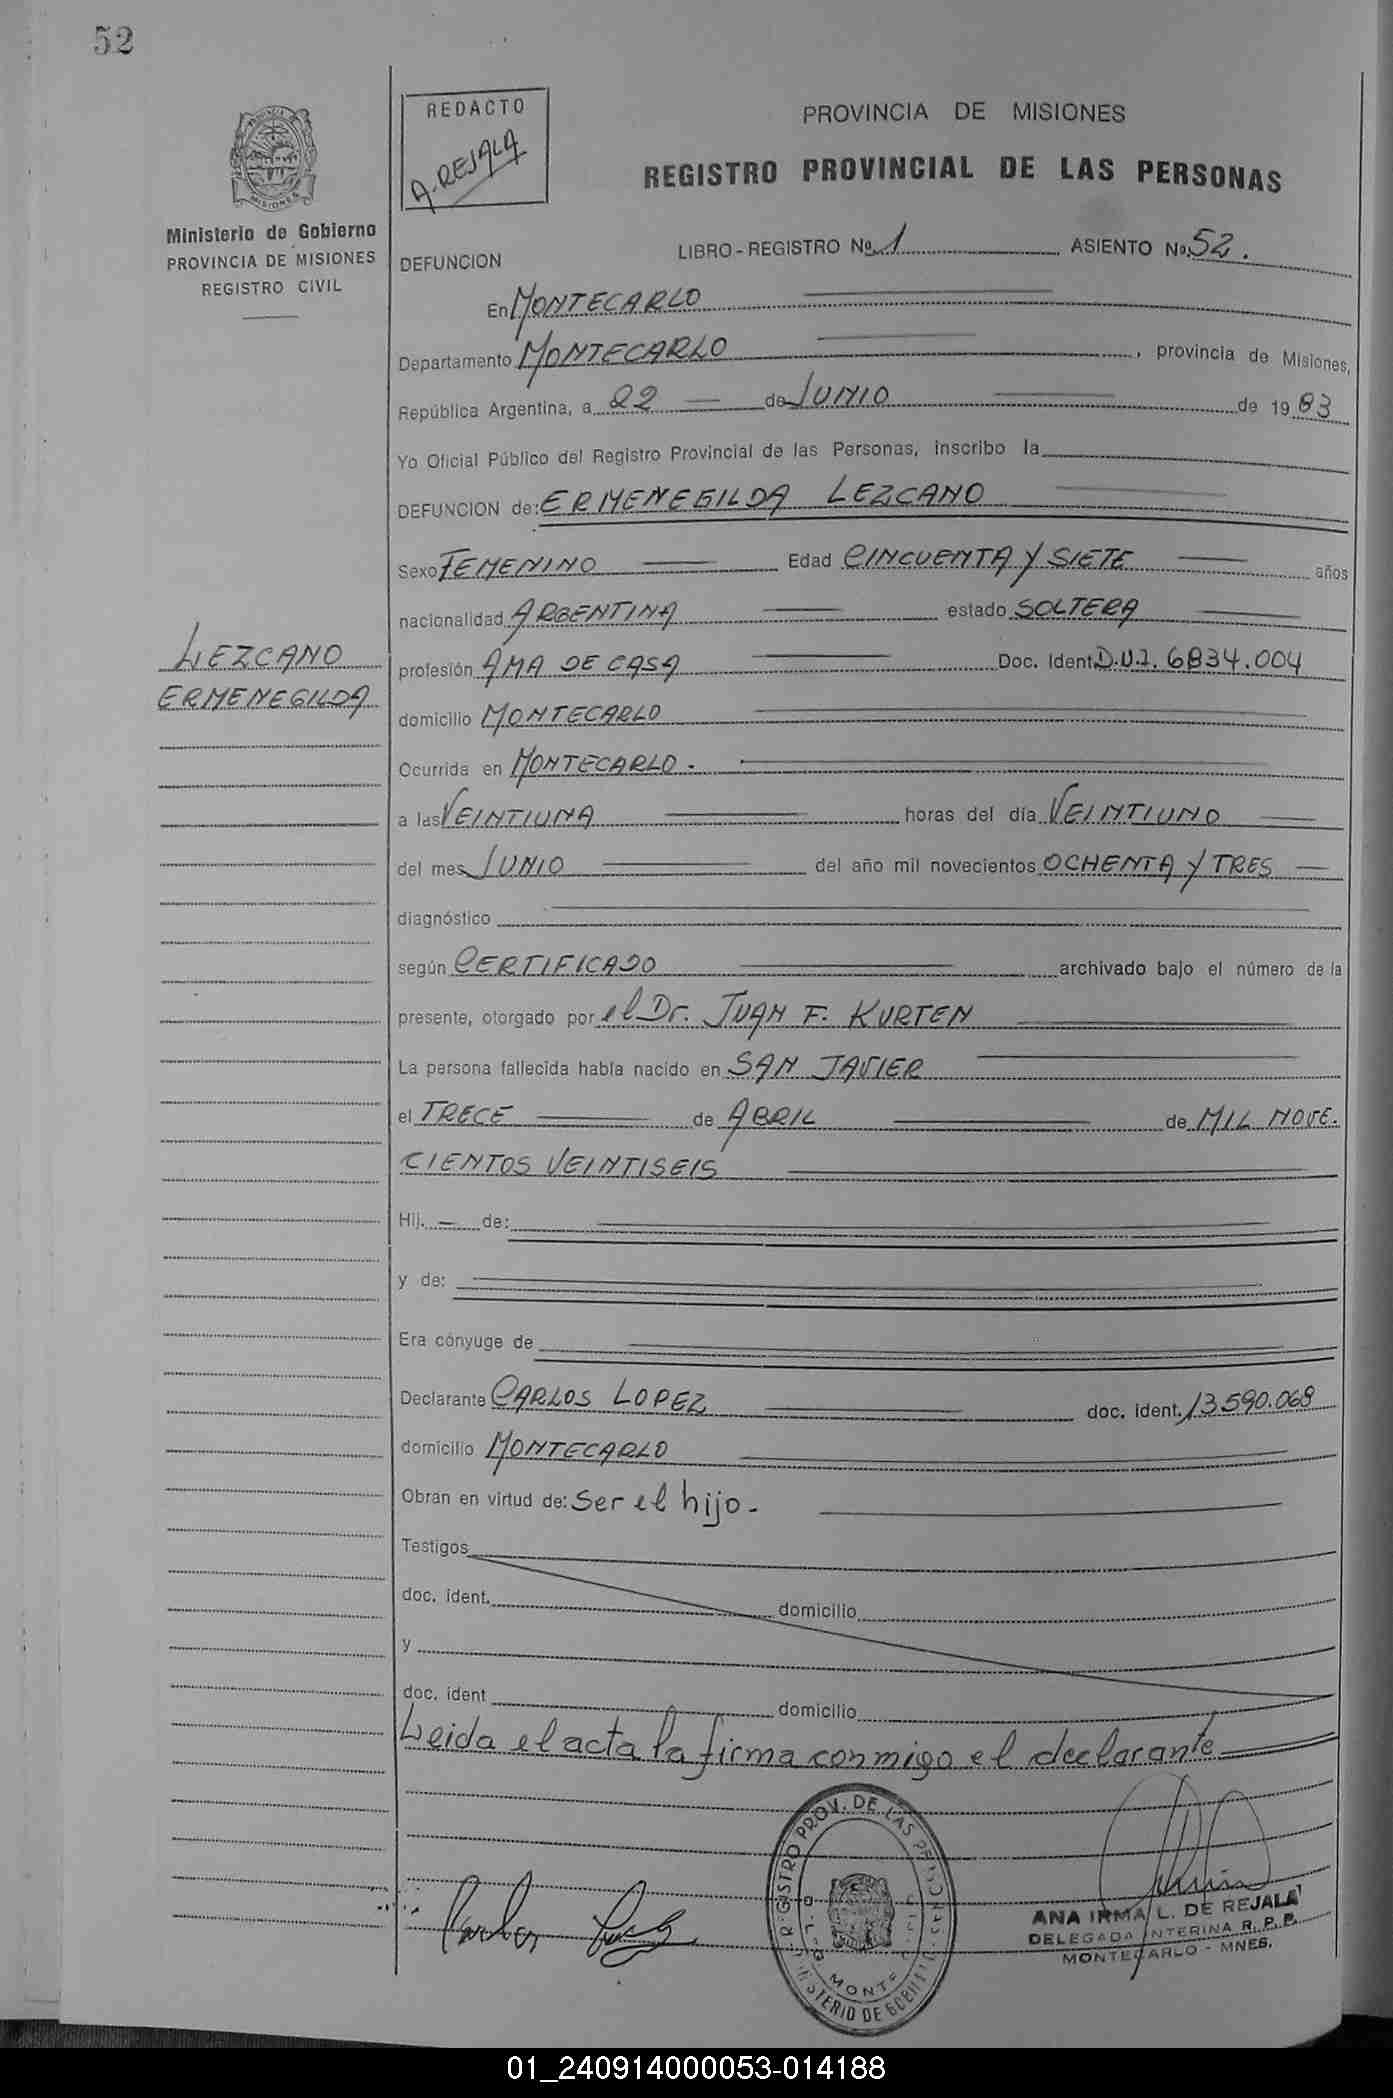 52
REDACTO
A. REJALA
PROVINCIA DE MISIONES
REGISTRO PROVINCIAL DE LAS PERSONAS
Ministerio de Gobierno
PROVINCIA DE MISIONES
REGISTRO CIVIL
DEFUNCION
LIBRO-REGISTRO No 1 ASIENTO No. 52.
En MONTECARLO
Departamento MONTECARLO, provincia de Misiones,
República Argentina, a 22 de JUNIO de 1983
Yo Oficial Público del Registro Provincial de las Personas, inscribo la
DEFUNCION de: ERMENEGILDA LEZCANO
Sexo FEMENINO Edad CINCUENTA Y SIETE años
nacionalidad ARGENTINA estado SOLTERA
LEZCANO
ERMENEGILDA
profesión AMA DE CASA Doc. Ident. D.U.I. 6834.004
domicilio MONTECARLO
Ocurrida en MONTECARLO.
a las VEINTIUNA horas del día VEINTIUNO
del mes JUNIO del año mil novecientos OCHENTA Y TRES
diagnóstico
según CERTIFICADO archivado bajo el número de la
presente, otorgado por el Dr. JUAN F. KURTEN
La persona fallecida había nacido en SAN JAVIER
el TRECE de ABRIL de MIL NOVE.
CIENTOS VEINTISEIS
Hij. — de:
y de:
Era cónyuge de
Declarante CARLOS LOPEZ doc. ident. 13.590.068
domicilio MONTECARLO
Obran en virtud de: Ser el hijo.
Testigos
doc. ident. domicilio
y
doc. ident domicilio
Leida el acta la firma conmigo el declarante
REGISTRO PROV. DE LAS PERSONAS
MINISTERIO DE GOBIERNO
MONTE
ANA IRMA L. DE REJALA
DELEGADA INTERINA R.P.P.
MONTECARLO - MNES.
01_240914000053-014188